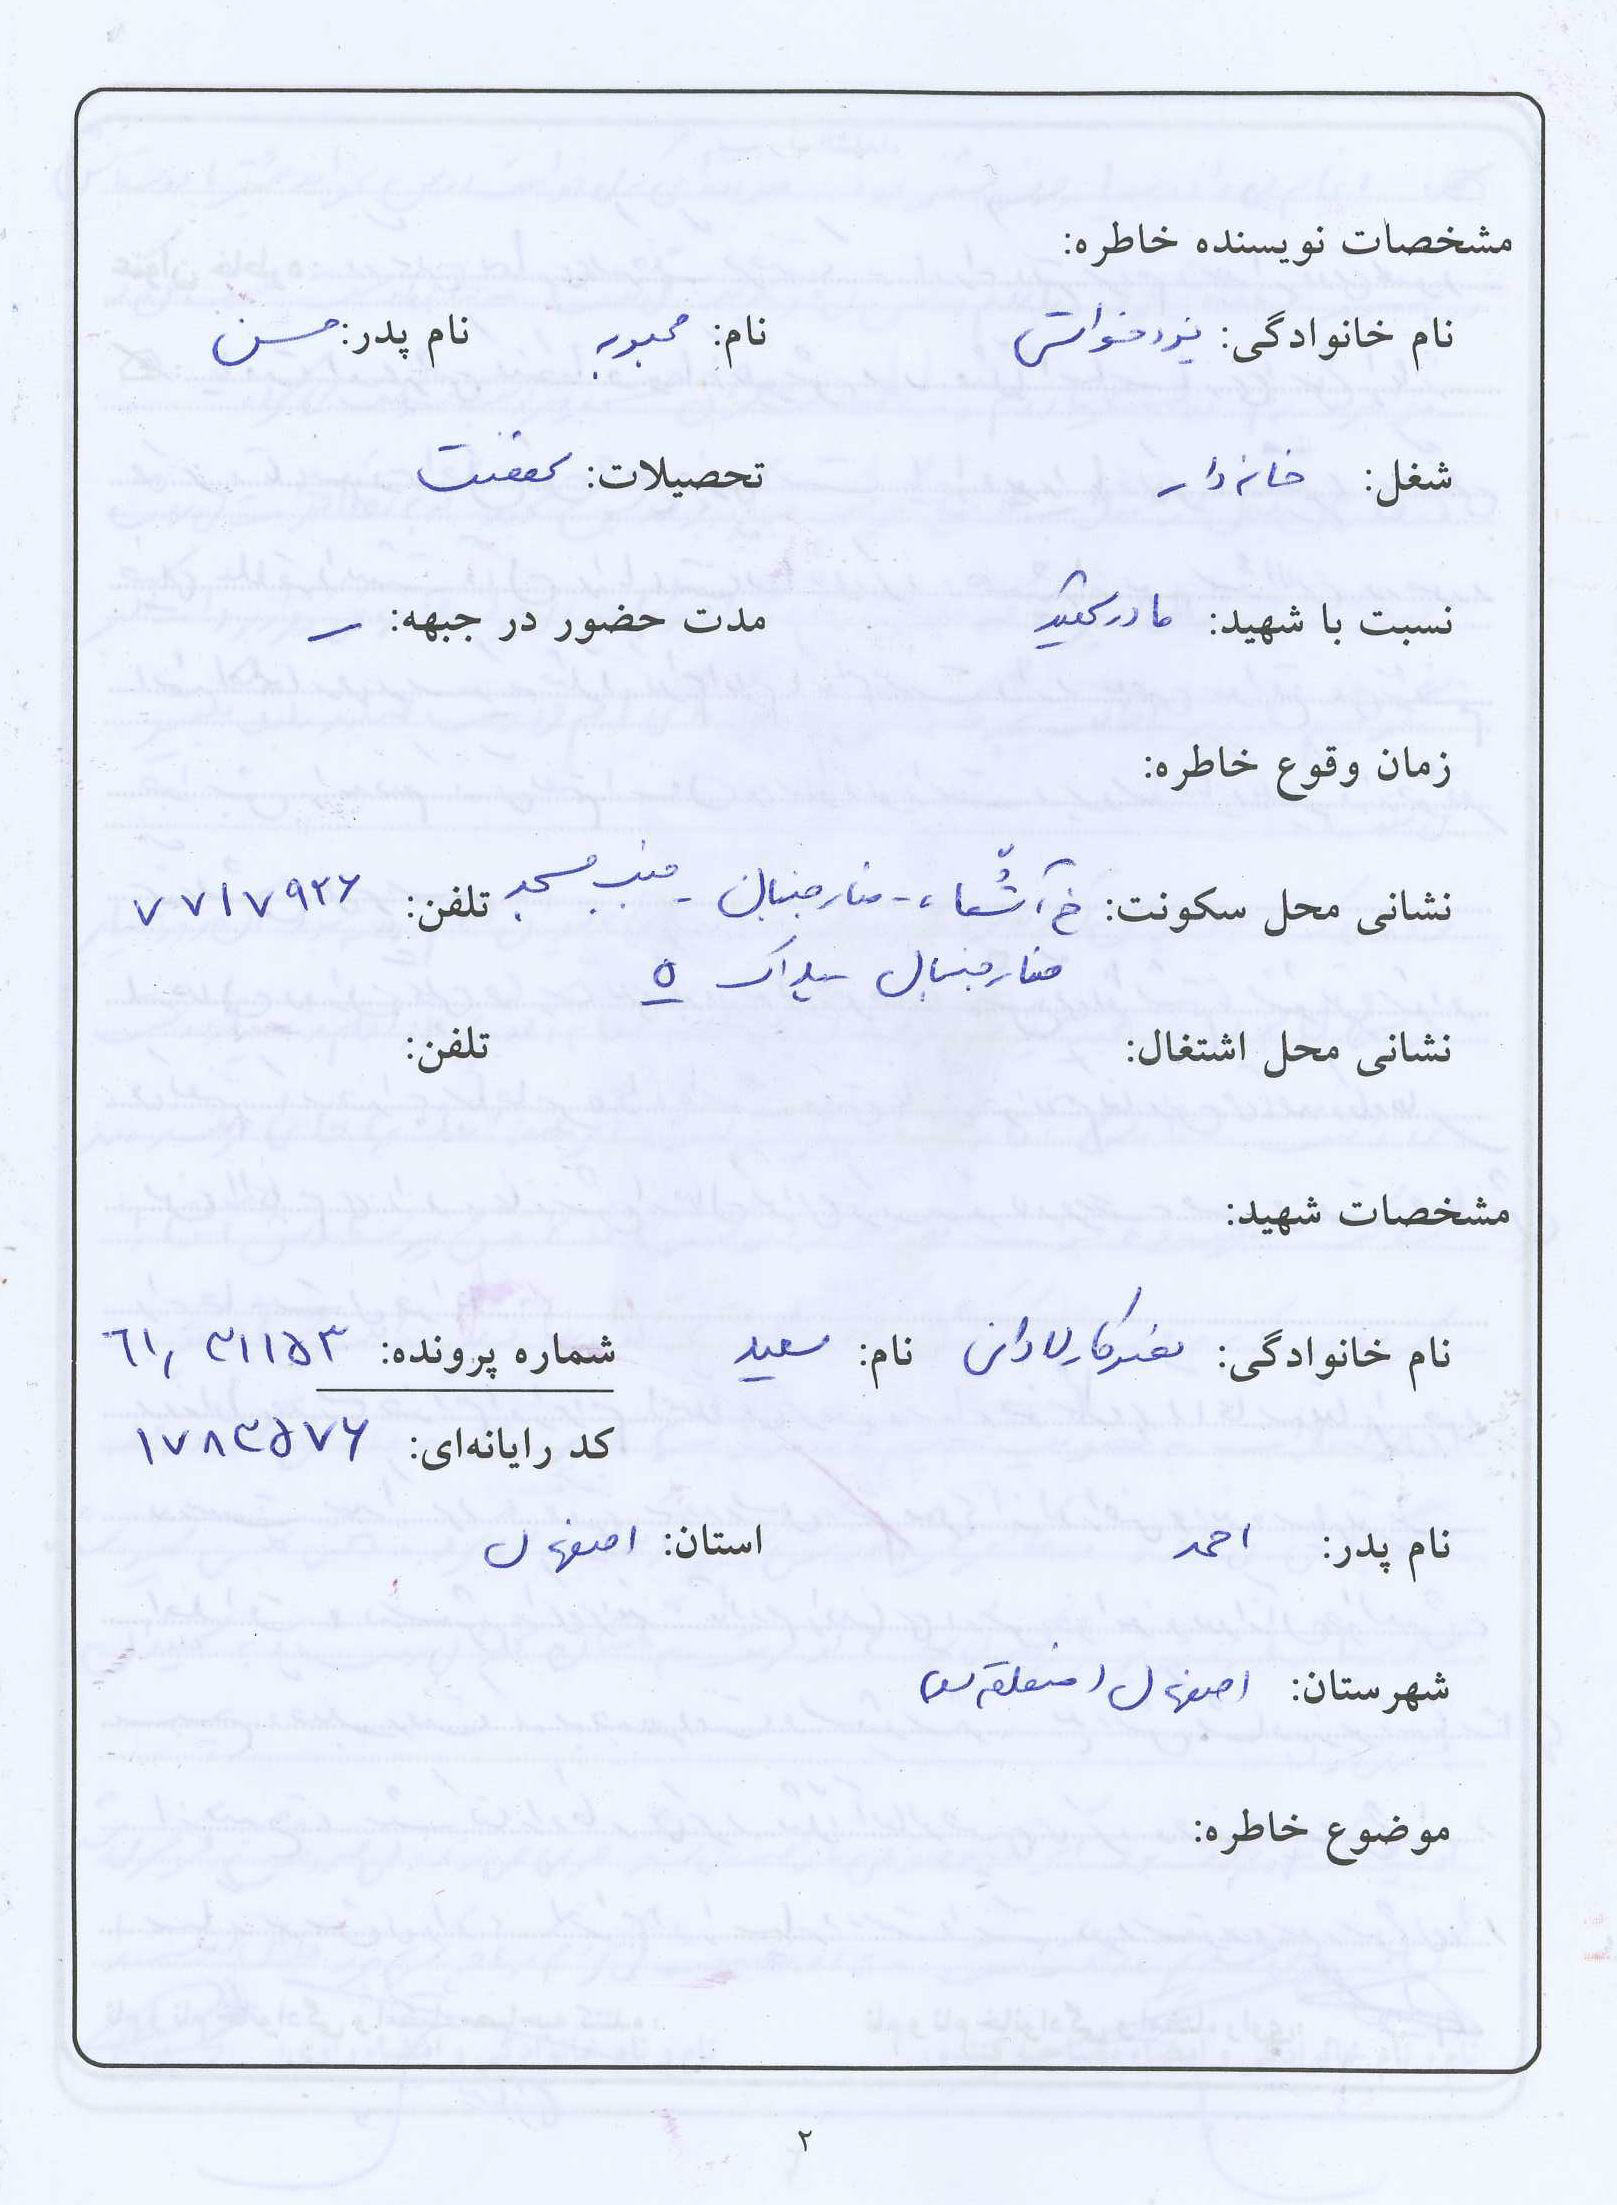 مشخصات نویسنده خاطره:
نام خانوادگی: نام: محبوبه نام پدر: حسن
شغل: خانه دار تحصیلات:
نسبت با شهید: مادر شهید مدت حضور در جبهه: ـ
زمان وقوع خاطره:
نشانی محل سکونت: خ آتشگاه - منارجنبان - جنب مسجد تلفن: ۷۷۱۷۹۲۶
منارجنبان پلاک ۵
نشانی محل اشتغال: تلفن:
مشخصات شهید:
نام خانوادگی: نام: سعید شماره پرونده: ۶۱,۳۱۱۵۳
کد رایانه‌ای: ۱۷۸۳۵۷۶
نام پدر: احمد استان: اصفهان
شهرستان: اصفهان
موضوع خاطره:
۲